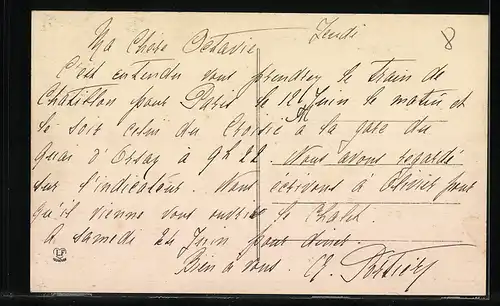 8
Jeudi
Ma Chère Octavie
C'est entendu vous prendrez le train de
Chatillon pour Paris le 12 Juin le matin et
le soir celui du Croisic à la gare du
Quai d'Orsay à 9h 22 Nous avons regardé
sur l'indicateur. Nous écrivons à Olivier pour
qu'il vienne vous ouvrir le Chalet.
A samedi 24 Juin pour diner.
Bien à vous.